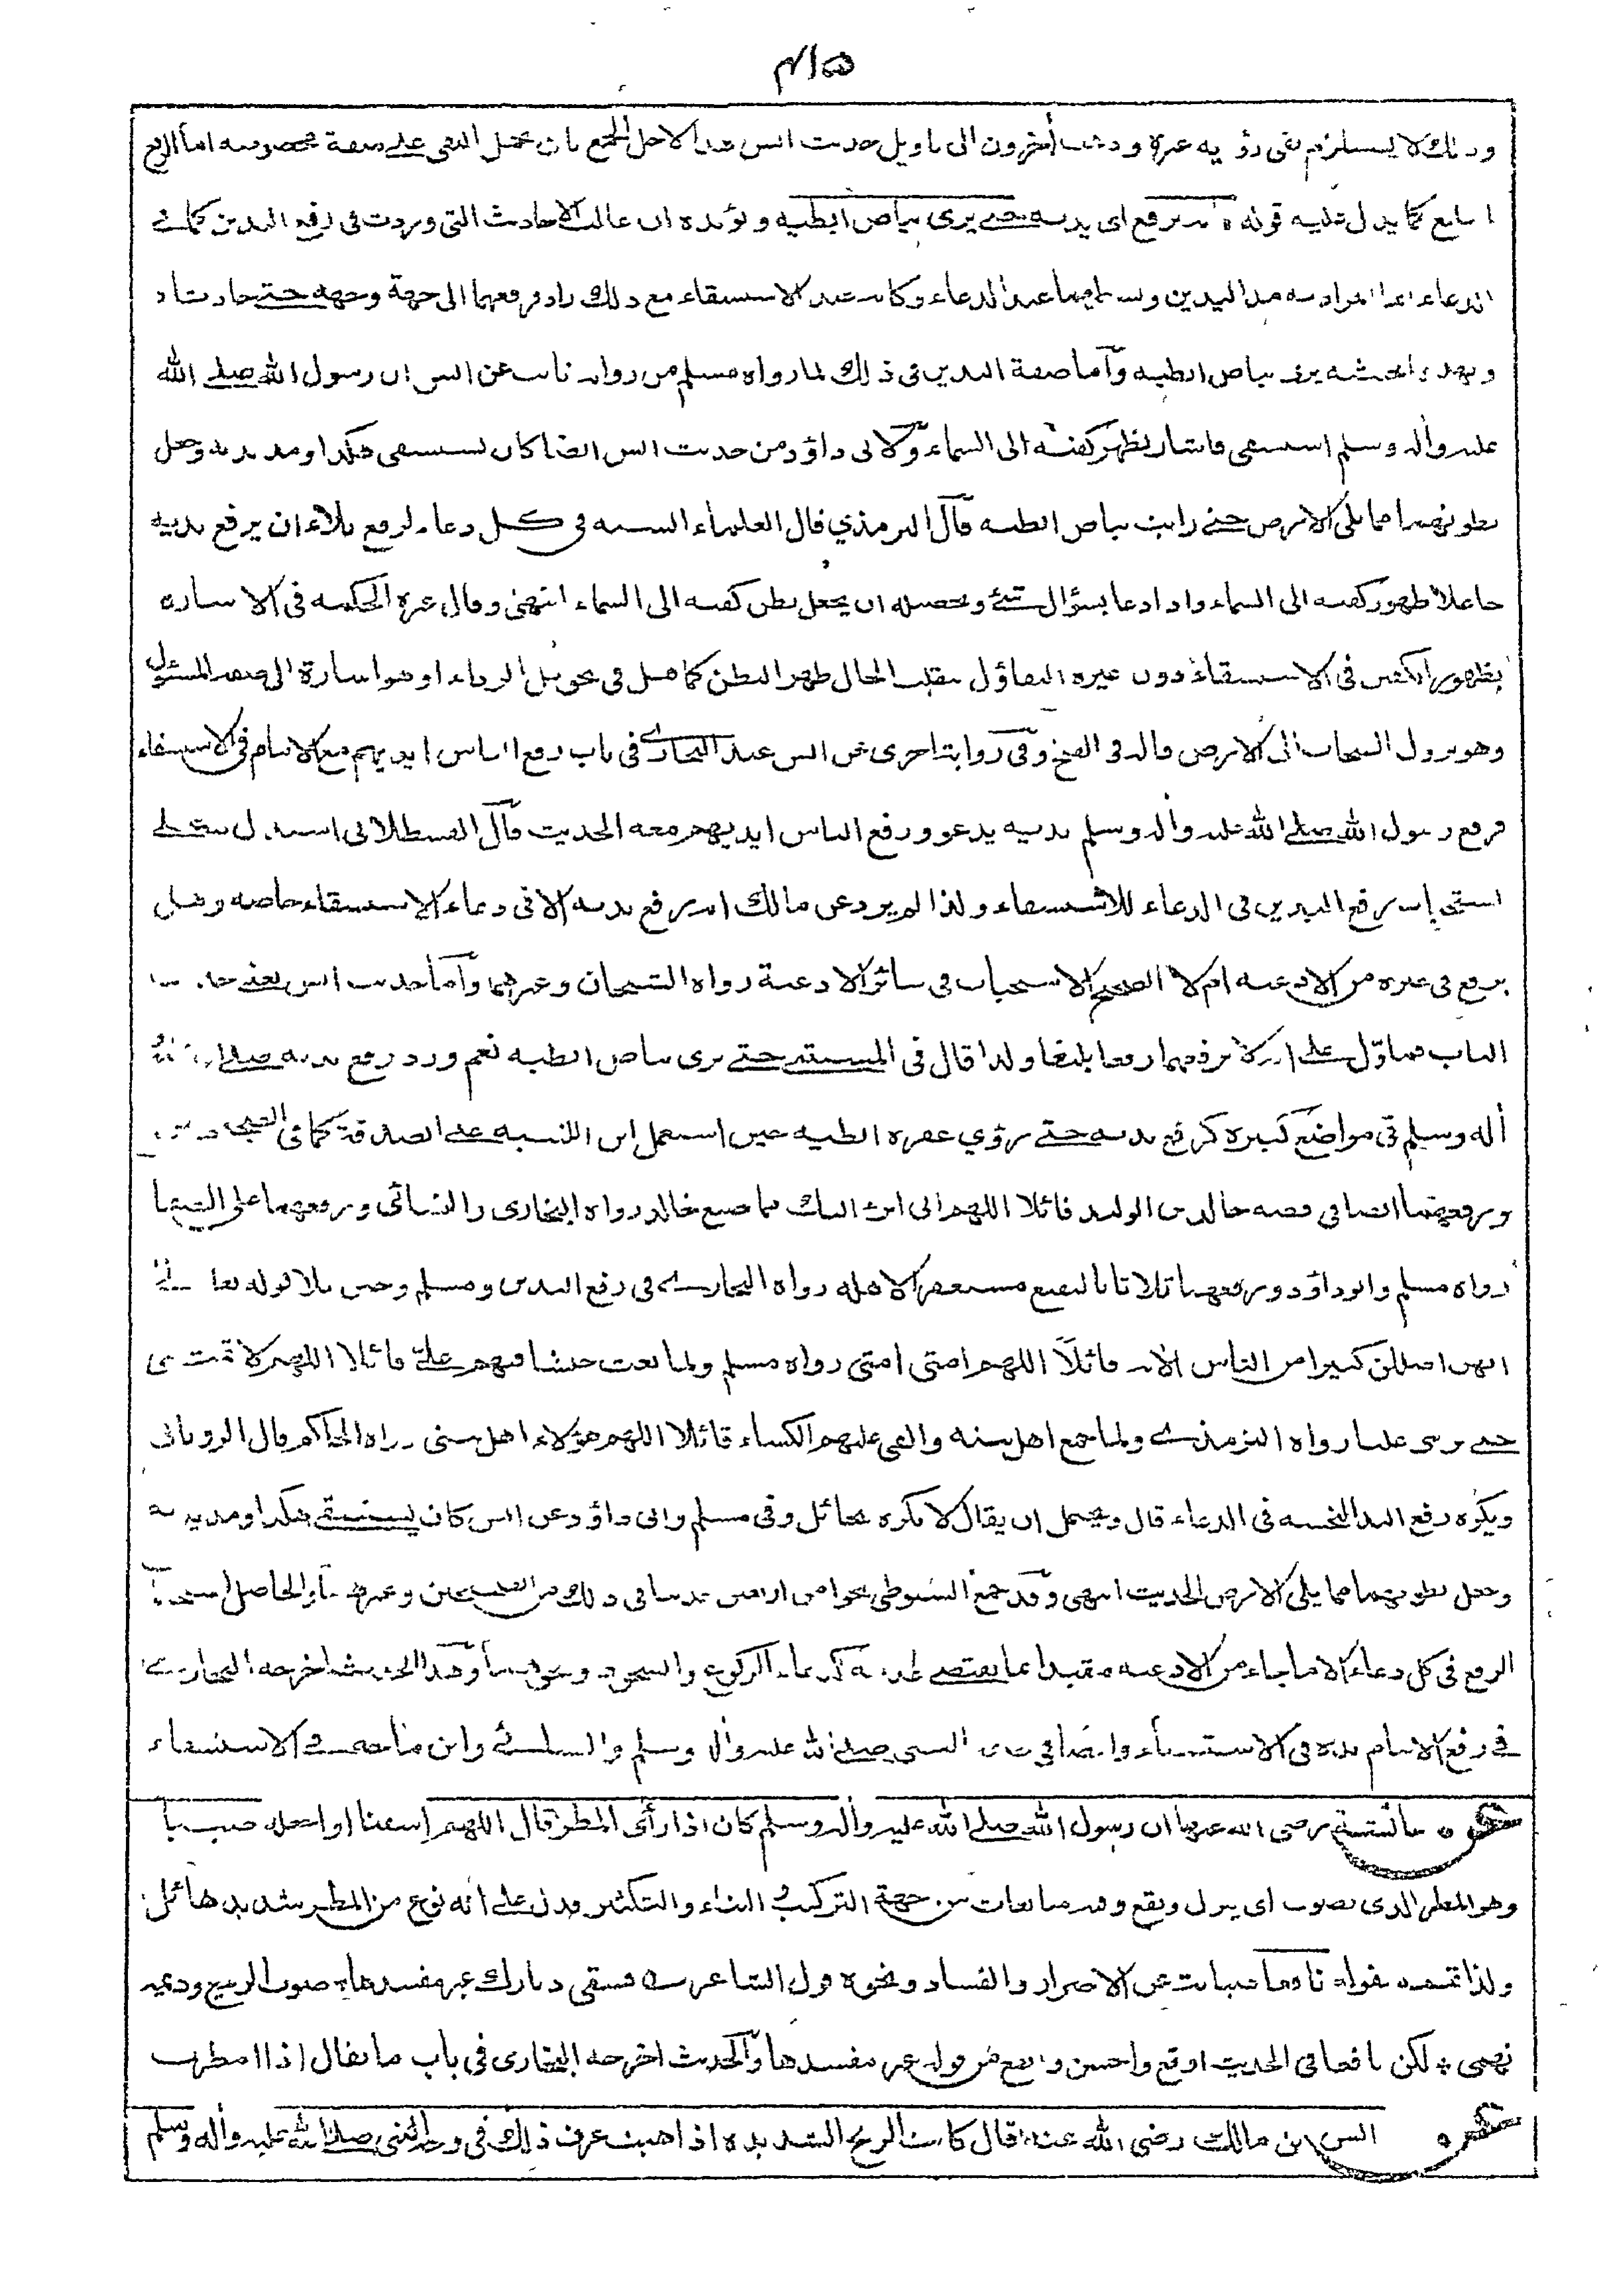 ٤١٥
وذلك لا يستلزم نفى رؤية غيره وذهب آخرون الى تاويل حديث انس هذا لاجل الجمع بان يحمل النفى على صفة مخصوصة اما الرفع
البليغ كما يدل عليه قوله يرفع اى يديه حتى يرى بياض ابطيه ويؤيده ان غالب الاحاديث التى وردت فى رفع اليدين كما فى
الدعاء انما المراد به مد اليدين وبسطهما عند الدعاء وكانه عند الاستسقاء مع ذلك زاد فرفعهما الى جهة وجهه حتى حاذتاه
وبه حينئذ يرى بياض ابطيه وأما صفة اليدين فى ذلك لما رواه مسلم من رواية ثابت عن انس ان رسول الله صلى الله
عليه وآله وسلم استسقى فاشار بظهر كفيه الى السماء ولابى داؤد من حديث انس ايضا كان يستسقى هكذا ومد يديه وجعل
بطونهما مما يلى الارض حتى رايت بياض ابطيه قال الترمذي قال العلماء السنة فى كل دعاء لرفع بلاء ان يرفع يديه
جاعلا ظهور كفيه الى السماء واذا دعا بسؤال شئ وتحصيله ان يجعل بطن كفيه الى السماء انتهى وقال غيره الحكمة فى الاشارة
بظهور الكفين فى الاستسقاء دون غيره التفاؤل بتقلب الحال ظهر البطن كما قيل فى تحويل الرداء او هو اشارة الى صفة المسئول
وهو نزول السحاب الى الارض قاله فى الفتح وفى رواية اخرى عن انس عند البخارى فى باب رفع الناس ايديهم مع الامام فى الاستسقاء
فرفع رسول الله صلى الله عليه وآله وسلم يديه يدعو ورفع الناس ايديهم معه الحديث قال القسطلانى استدل به على
استحباب رفع اليدين فى الدعاء للاستسقاء ولذا لم يرد عن مالك انه رفع يديه الا فى دعاء الاستسقاء خاصة وهل
يرفع فى غيره من الادعية ام لا الصحيح الاستحباب فى سائر الادعية رواه الشيخان وغيرهما وأما حديث انس يعنى حديث
الباب فماول على انه لا يرفعهما رفعا بليغا ولذا قال فى المستثنى حتى يرى بياض ابطيه نعم ورد رفع يديه صلى الله
آله وسلم فى مواضع كثيرة كرفع يديه حتى رؤي عفرة ابطيه حين استعمل ابن اللتبية على الصدقة كما فى الصحيحين
ورفعهما ايضا فى قصة خالد بن الوليد قائلا اللهم انى ابرئ اليك مما صنع خالد رواه البخارى والنسائى ورفعهما على الصفا
رواه مسلم وابو داؤد ورفعهما ثلاثا بالبقيع مستغفرا لاهله رواه البخارى فى رفع اليدين ومسلم وحين تلا قوله تعالى
انهن اضللن كثيرا من الناس الآية قائلا اللهم امتى امتى رواه مسلم ولما بعث جيشا فيهم على قائلا اللهم لا تمتنى
حتى ترينى عليا رواه الترمذى ولما جمع اهل بيته والقى عليهم الكساء قائلا اللهم هؤلاء اهل بيتى رواه الحاكم قال الرويانى
ويكره رفع اليد النجسة فى الدعاء قال ويحتمل ان يقال لا يكره بحائل وفى مسلم وابى داؤد عن انس كان يستسقى هكذا ومد يديه
وجعل بطونهما مما يلى الارض الحديث انتهى وقد جمع السيوطى نحوا من اربعين حديثا فى ذلك من الصحيحين وغيرهما والحاصل استحباب
الرفع فى كل دعاء الا ما جاء من الادعية مقيدا بما يقتضى عدمه كدعاء الركوع والسجود ونحوهما وهذا الحديث اخرجه البخارى
فى رفع الامام يده فى الاستسقاء وايضا فى صفة النبى صلى الله عليه وآله وسلم والنسائى وابن ماجه فى الاستسقاء
عن عائشة رضى الله عنها ان رسول الله صلى الله عليه وآله وسلم كان اذا رأى المطر قال اللهم اسقنا او اجعله صيبا
وهو المطر الذى يصوب اى ينزل ويقع وفيه مبالغات من جهة التركيب والبناء والتكثير فدل على انه نوع من المطر شديد هائل
ولذا تممه بقوله نافعا صيانة عن الاضرار والفساد ونحوه قول الشاعر فسقى ديارك غير مفسدها صوب الربيع وديمة
تهمى لكن نافعا فى الحديث اوقع واحسن وانفع من قوله غير مفسدها والحديث اخرجه البخارى فى باب ما يقال اذا امطرت
عن انس بن مالك رضى الله عنه قال كانت الريح الشديدة اذا هبت عرف ذلك فى وجه النبى صلى الله عليه وآله وسلم